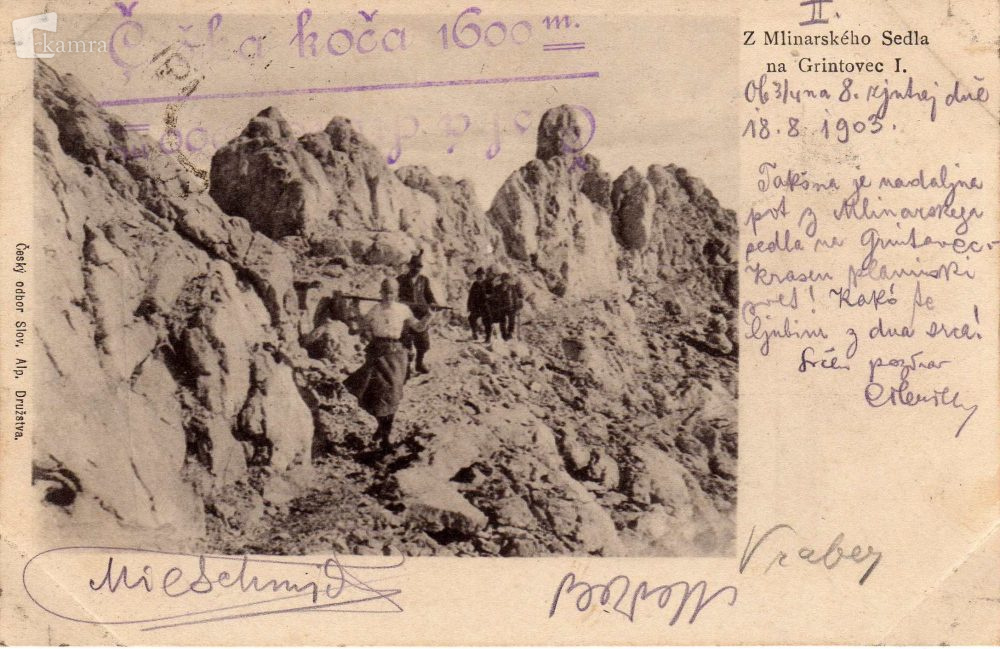 kamra
Češka koča 1600 m.
II.
Z Mlinarského Sedla
na Grintovec I.
Ob 3/4 na 8. zjutraj dně
18. 8. 1903.
Takšna je nadaljna
pot z Mlinarskega
sedla na Grintovec.
Krasen planinski
svet! Kakó te
ljubim z dna srca!
Srčen pozdrav
Český odbor Slov. Alp. Družstva.
Vraber